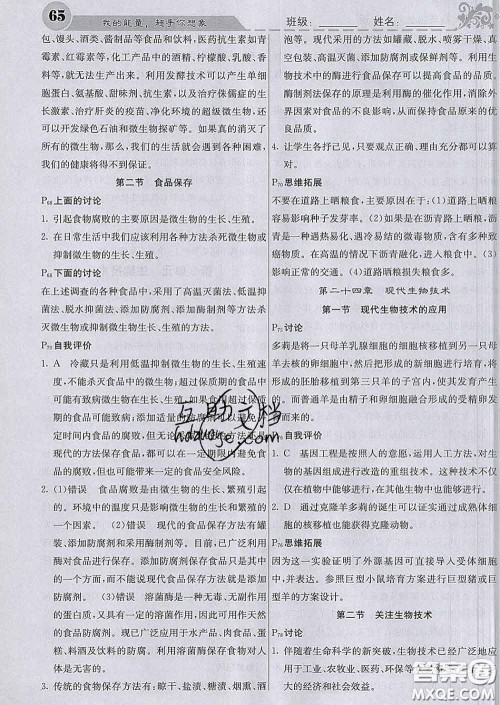 65
我的能量，超乎你想象
班级：
姓名：
包、馒头、酒类、酱制品等食品和饮料，医药抗生素如青
霉素、红霉素等，化工产品中的酒精、柠檬酸、乳酸、香
料等，就无法生产出来。利用发酵技术可以产生单细
胞蛋白、氨基酸、甜味剂、抗生素，以及治疗侏儒症的生
长激素、治疗肝炎的疫苗、净化环境的超级微生物，还
可以开发绿色石油和微生物探矿等。如果真的消灭了
所有的微生物，那么，我们的生活就会遇到各种困难，
我们的健康将得不到保证。
第二节 食品保存
P68上面的讨论
1. 引起食物腐败的主要原因是微生物的生长、生殖。
2. 在日常生活中我们应该利用各种方法杀死微生物或
抑制微生物的生长、生殖。
P68下面的讨论
在上述调查的各种食品中，采用了高温灭菌法、低
温法、脱水法、添加防腐剂、添加酶制剂等方法杀
灭微生物或抑制微生物生长、生殖的方法。
P70自我评价
1. A 冷藏只是利用低温抑制微生物的生长、生殖速
度，不能杀灭食品中的微生物；超过保质期的食品中
可能有致病微生物在生长、繁殖，如果食用超过保质
期的食品可能致病；添加防腐剂的方法可以避免一
定时间内食品的腐败，但无论
现代的方法保存食品都可以在一定期限内避免食
品的腐败，但不能保证一定时间的食品安全风险。
2. (1)错误 食品腐败是由微生物的生长、繁殖引起
的。环境中的温度只是影响微生物的生长、生殖的
因素之一。 (2)错误 现代的食品保存方法有罐
装、添加防腐剂和采用酶制剂等。目前，已广泛利用
酶制剂对食品进行保存。添加防腐剂保存食品只是其中
的一个方面，而不能说现代的食品保存方法就是添加
防腐剂。 (3)错误 溶菌酶是一种无毒、无副作用
的蛋白质，又具有一定的溶菌作用，因此可用作天然
的食品防腐剂。现已广泛用于水产品、肉食品、蛋
糕、酒料及饮料的防腐。利用溶菌酶保存食物对人
体是无害的。
3. 传统的食物保存方法有：晾干、盐渍、糖渍、烟熏、酒
泡等。现代的保存方法如罐藏、脱水、喷雾干燥、真
空包装、高温灭菌、添加防腐剂或保鲜剂等。利用生
物技术中的酶进行食品保存可以提高食品的品质。
酶制剂法保存的原理是利用酶的催化作用，消除外
界因素对食品的不良影响，从而保持食品原来的优
良品质。
4. 让学生各抒己见，只要观点正确、理由充分都可以。
P70思维拓展
不要在道路上晒粮食，主要原因在于：(1)道路上晒粮
食容易影响种子发芽率。(2)如果是在沥青路上晒粮食，沥
青是一种遇热易化、遇冷易结的微毒物质，含有多种致
癌物质。在高温的状况下沥青融化，进入粮食中。(3)
影响正常的交通。(4)道路晒粮食易引发多种事故。
第二十四章 现代生物技术
第一节 现代生物技术的应用
P75
多莉是将一只母羊乳腺细胞的细胞核移植到另一只母羊
去核的卵细胞中，然后把所得的新细胞进行培育，将
形成的胚胎移植到第三只羊的子宫内，使其发育产生
的。而普通羊是由精子和卵细胞融合形成的受精卵发
育而来的。
P76自我评价
1. C 基因工程是按照人的意愿，运用人工方法，对生
物的基因组成进行改造的重组技术。这种技术不仅
仅在植物上应用，也能在其他生物中应用。
2. D 通过克隆羊多莉的诞生可以证明成熟的体细胞
的细胞核移植也能获得克隆动物。
P76思维拓展
因为这一实验证明了外源基因可直接导入受体细胞
中，并表达。参照巨型小鼠培育方案进行巨型猪或巨型
羊的方案设计。
第二节 关注生物技术
P78
1. 伴随着生命科学的新突破，生物技术已经广泛地应
用于工业、农牧业、医药、环保等众多领域，产生了巨大
的经济和社会效益。
互助文档
答案圈
MXQE.COM